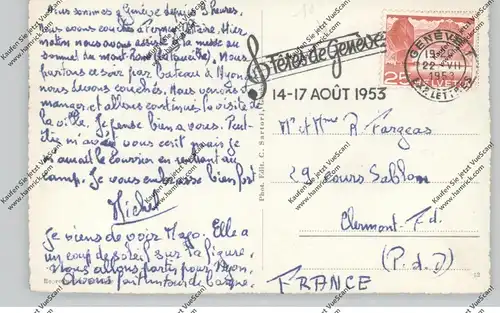 Nous sommes à Genève depuis 3 heures.
nous avons couché à Fernay Voltaire. Hier
matin nous avons assisté à la messe au
sommet du mont Rond (la faucille). Nous
partons ce soir par bateau à Nyon
nous devons coucher. Nous venons de
manger et allons continuer la visite de
la ville. Je pense bien à vous. Peut-
être m'avez vous écrit mais je
n'aurai le courrier en rentrant au
camp. Je vous embrasse bien fort
Michel
Je viens de voir Mayo. Elle a
un coup de soleil sur la figure.
Nous allons partir pour Nyon.
Fêtes de Genève
14-17 AOÛT 1953
GENÈVE 1
22 VII
1953
EXP. LETTRES
25
HELVETIA
Mr et Mme R. Fargeas
29 cours Sablon
Clermont-Fd.
(P.d.D)
FRANCE
Phot. Edit. C. Sartori,
Kaufen Sie jetzt VueScan!
www.hamrick.com